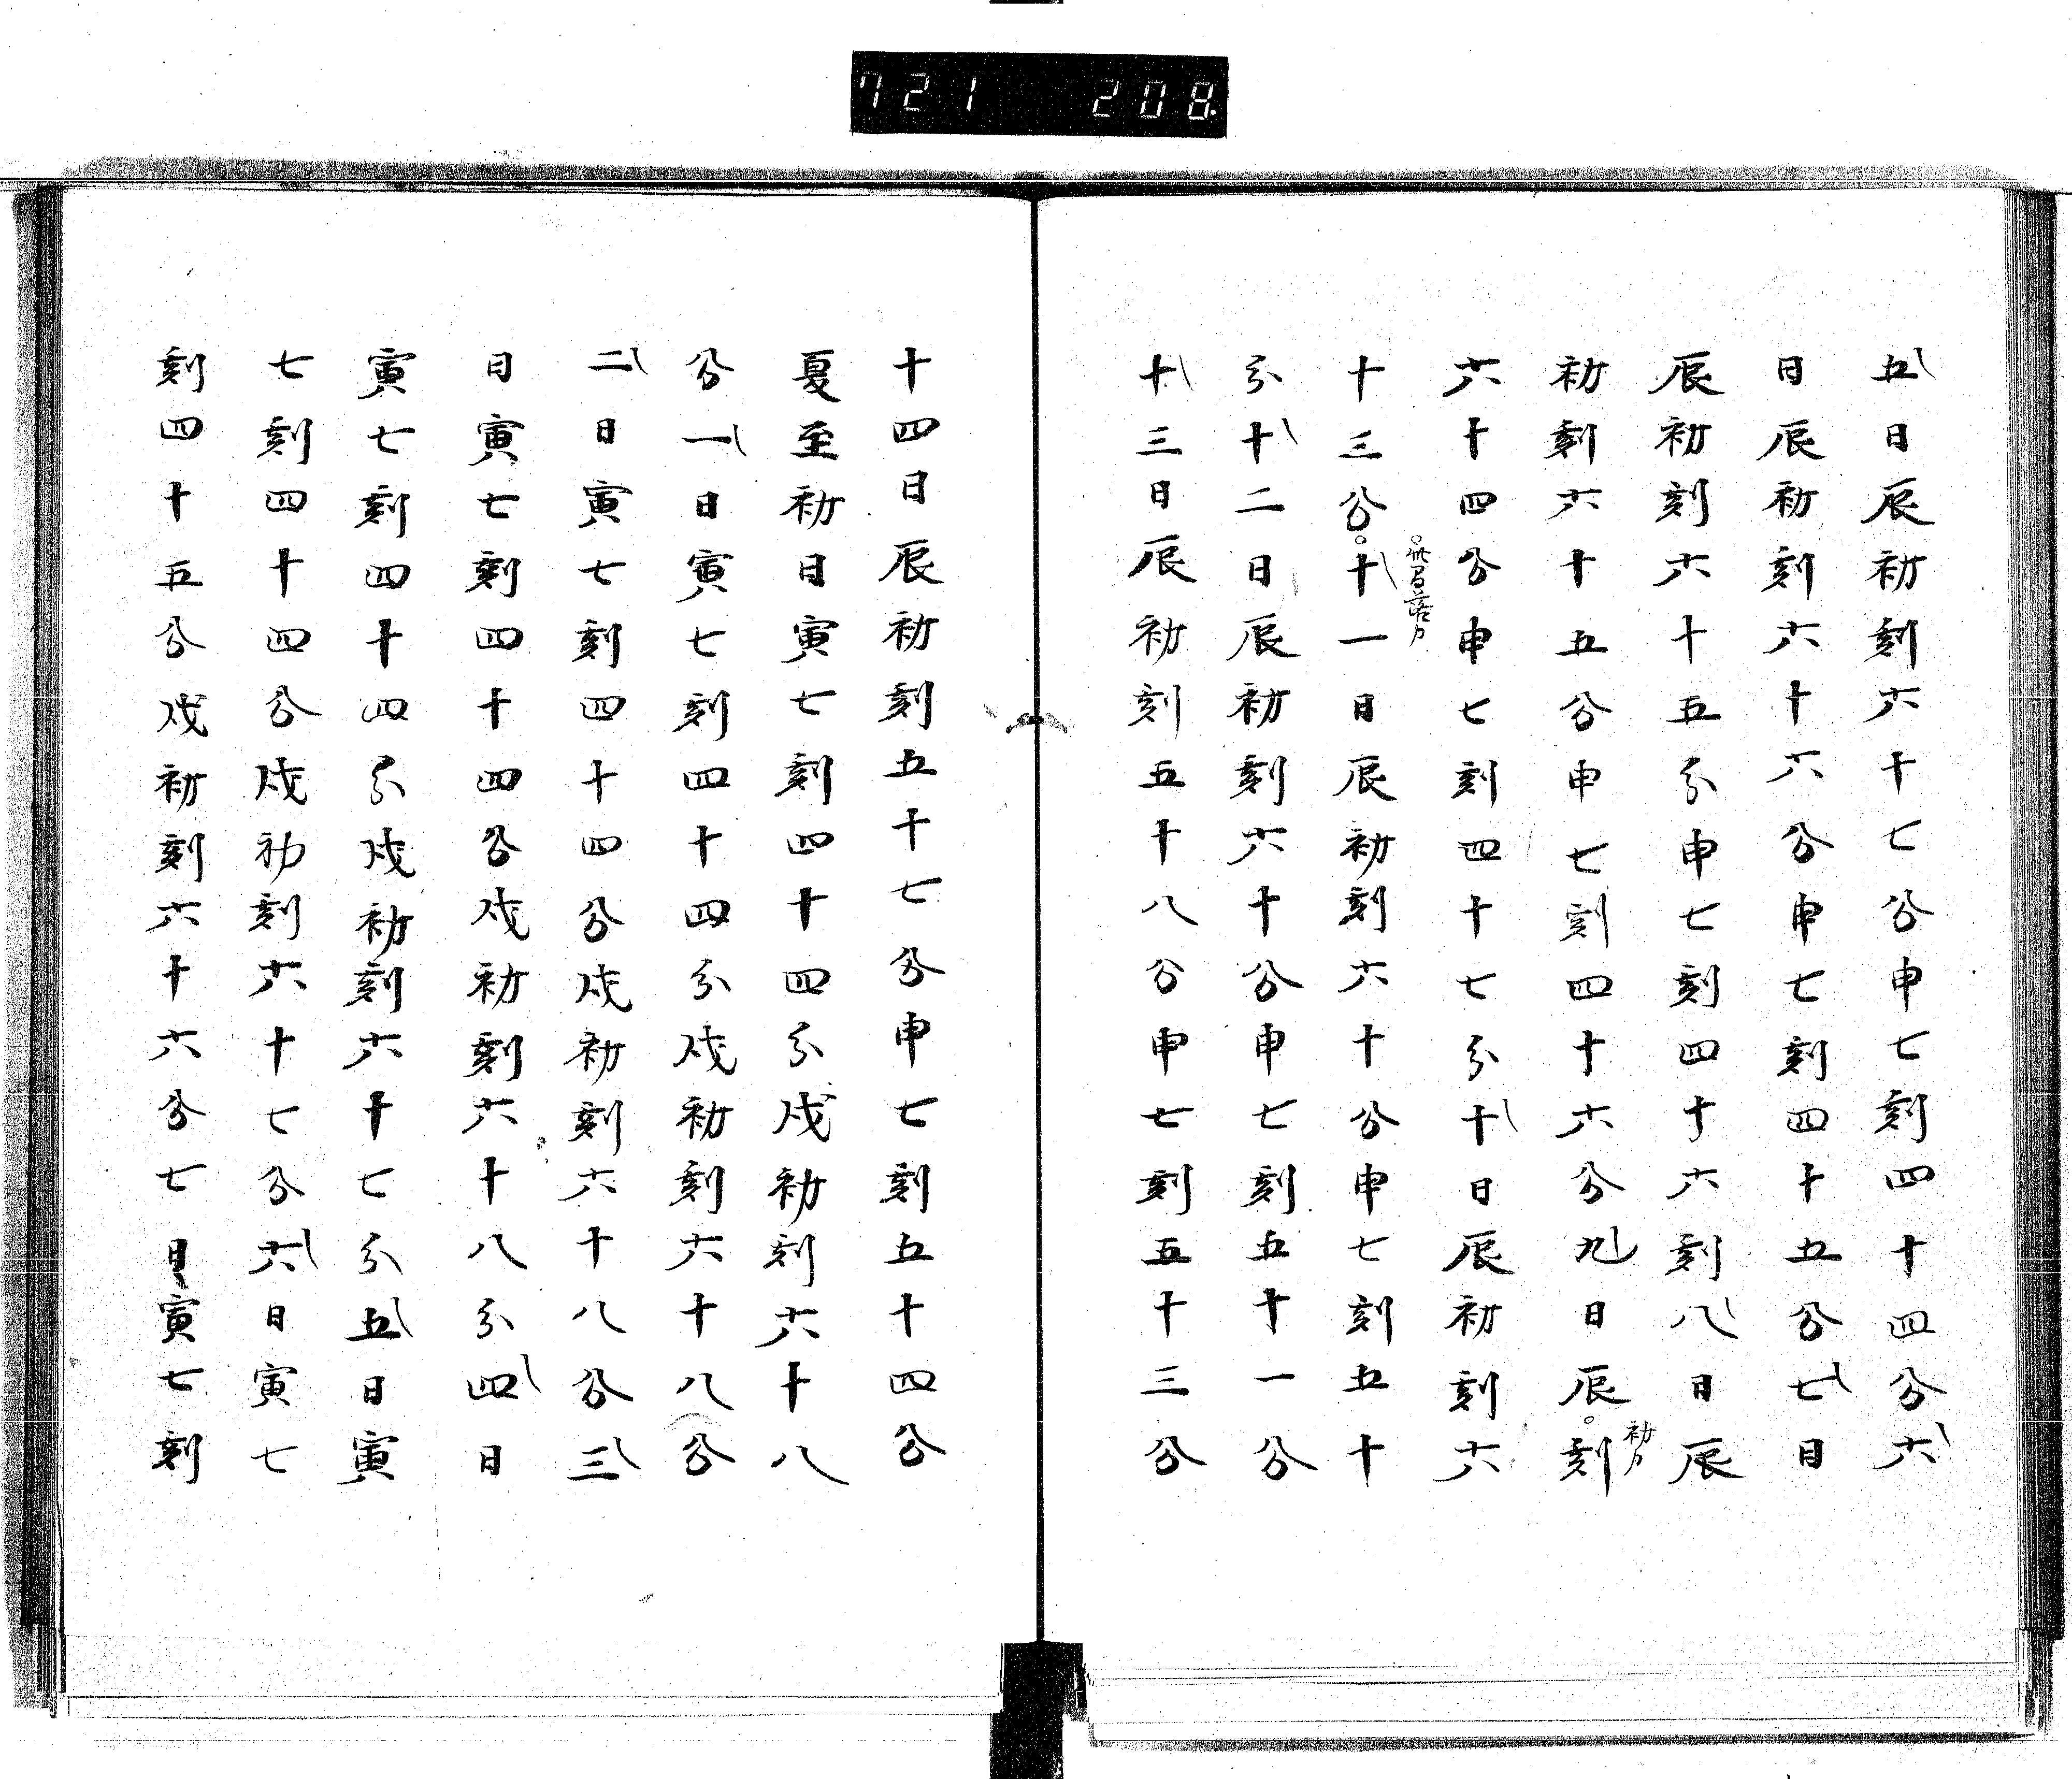 721 208
五日辰初刻六十七分申七刻四十四分六
日辰初刻六十六分申七刻四十五分七日
辰初刻六十五分申七刻四十六刻八日辰
初刻六十五分申七刻四十六分九日辰刻
初カ
六十四分申七刻四十七分十日辰初刻六
十三分十一日辰初刻六十分申七刻五十
分十二日辰初刻六十分申七刻五十一分
十三日辰初刻五十八分申七刻五十三分
十四日辰初刻五十七分申七刻五十四分
夏至初日寅七刻四十四分戌初刻六十八
分一日寅七刻四十四分戌初刻六十八分
二日寅七刻四十四分戌初刻六十八分三
日寅七刻四十四分戌初刻六十八分四日
寅七刻四十四分戌初刻六十七分五日寅
七刻四十四分戌初刻六十七分六日寅七
刻四十五分戌初刻六十六分七日寅七刻